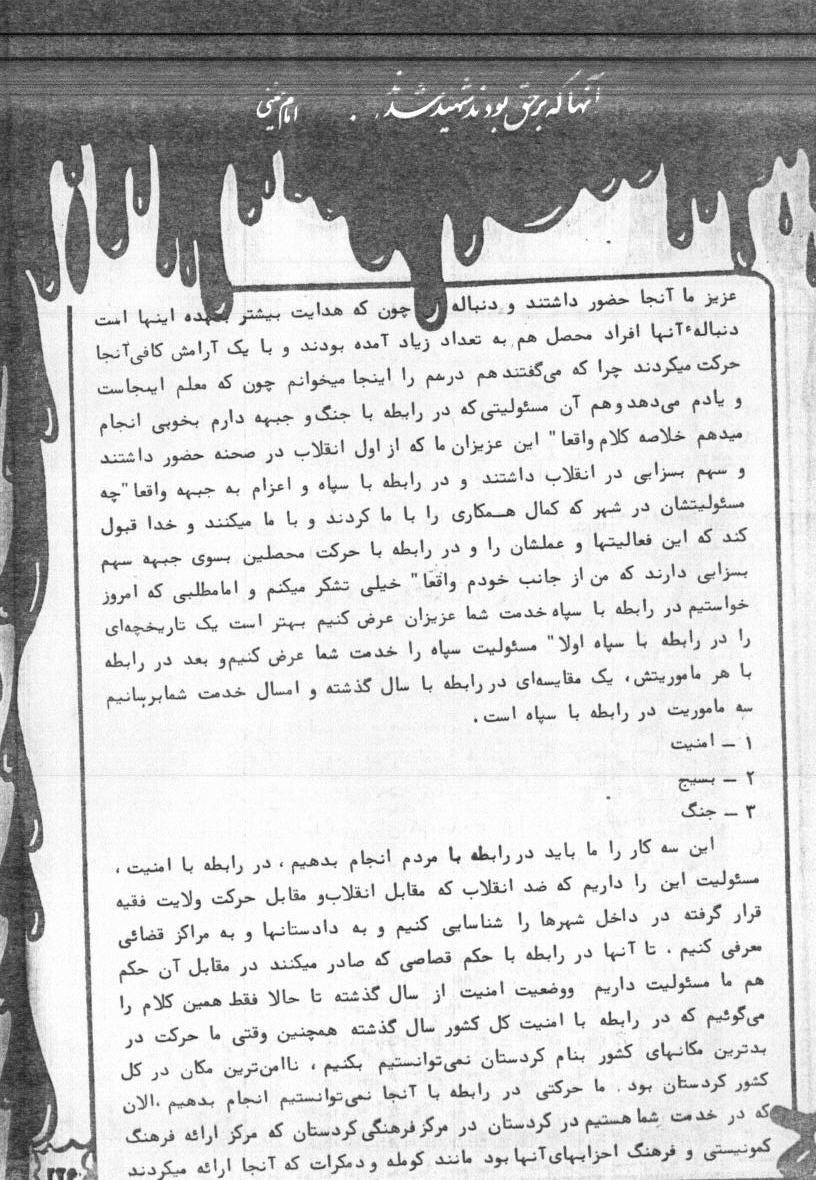 آنها که بر حق بودند شهید شدند . . امام خمینی
عزیز ما آنجا حضور داشتند و دنباله چون که هدایت بیشتر بعهده اینها است
دنبالهٔ آنها افراد محصل هم به تعداد زیاد آمده بودند و با یک آرامش کافی آنجا
حرکت میکردند چرا که می‌گفتند هم درسم را اینجا میخوانم چون که معلم اینجاست
و یادم می‌دهد و هم آن مسئولیتی که در رابطه با جنگ و جبهه دارم بخوبی انجام
میدهم خلاصه کلام واقعا" این عزیزان ما که از اول انقلاب در صحنه حضور داشتند
و سهم بسزایی در انقلاب داشتند و در رابطه با سپاه و اعزام به جبهه واقعا"چه
مسئولیتشان در شهر که کمال همکاری را با ما کردند و با ما میکنند و خدا قبول
کند که این فعالیتها و عملشان را و در رابطه با حرکت محصلین بسوی جبهه سهم
بسزایی دارند که من از جانب خودم واقعا" خیلی تشکر میکنم و امامطلبی که امروز
خواستیم در رابطه با سپاه خدمت شما عزیزان عرض کنیم بهتر است یک تاریخچه‌ای
را در رابطه با سپاه اولا" مسئولیت سپاه را خدمت شما عرض کنیم‌و بعد در رابطه
با هر ماموریتش، یک مقایسه‌ای در رابطه با سال گذشته و امسال خدمت شمابرسانیم
سه ماموریت در رابطه با سپاه است .
۱ – امنیت
۲ – بسیج
۳ – جنگ
این سه کار را ما باید در رابطه با مردم انجام بدهیم ، در رابطه با امنیت ،
مسئولیت این را داریم که ضد انقلاب که مقابل انقلاب‌و مقابل حرکت ولایت فقیه
قرار گرفته در داخل شهرها را شناسایی کنیم و به دادستانها و به مراکز قضائی
معرفی کنیم . تا آنها در رابطه با حکم قصاصی که صادر میکنند در مقابل آن حکم
هم ما مسئولیت داریم ووضعیت امنیت از سال گذشته تا حالا فقط همین کلام را
می‌گوئیم که در رابطه با امنیت کل کشور سال گذشته همچنین وقتی ما حرکت در
بدترین مکانهای کشور بنام کردستان نمی‌توانستیم بکنیم ، ناامن‌ترین مکان در کل
کشور کردستان بود . ما حرکتی در رابطه با آنجا نمی‌توانستیم انجام بدهیم ،الان
که در خدمت شما هستیم در کردستان در مرکز فرهنگی کردستان که مرکز ارائه فرهنگ
کمونیستی و فرهنگ احزابهای آنها بود مانند کومله و دمکرات که آنجا ارائه میکردند